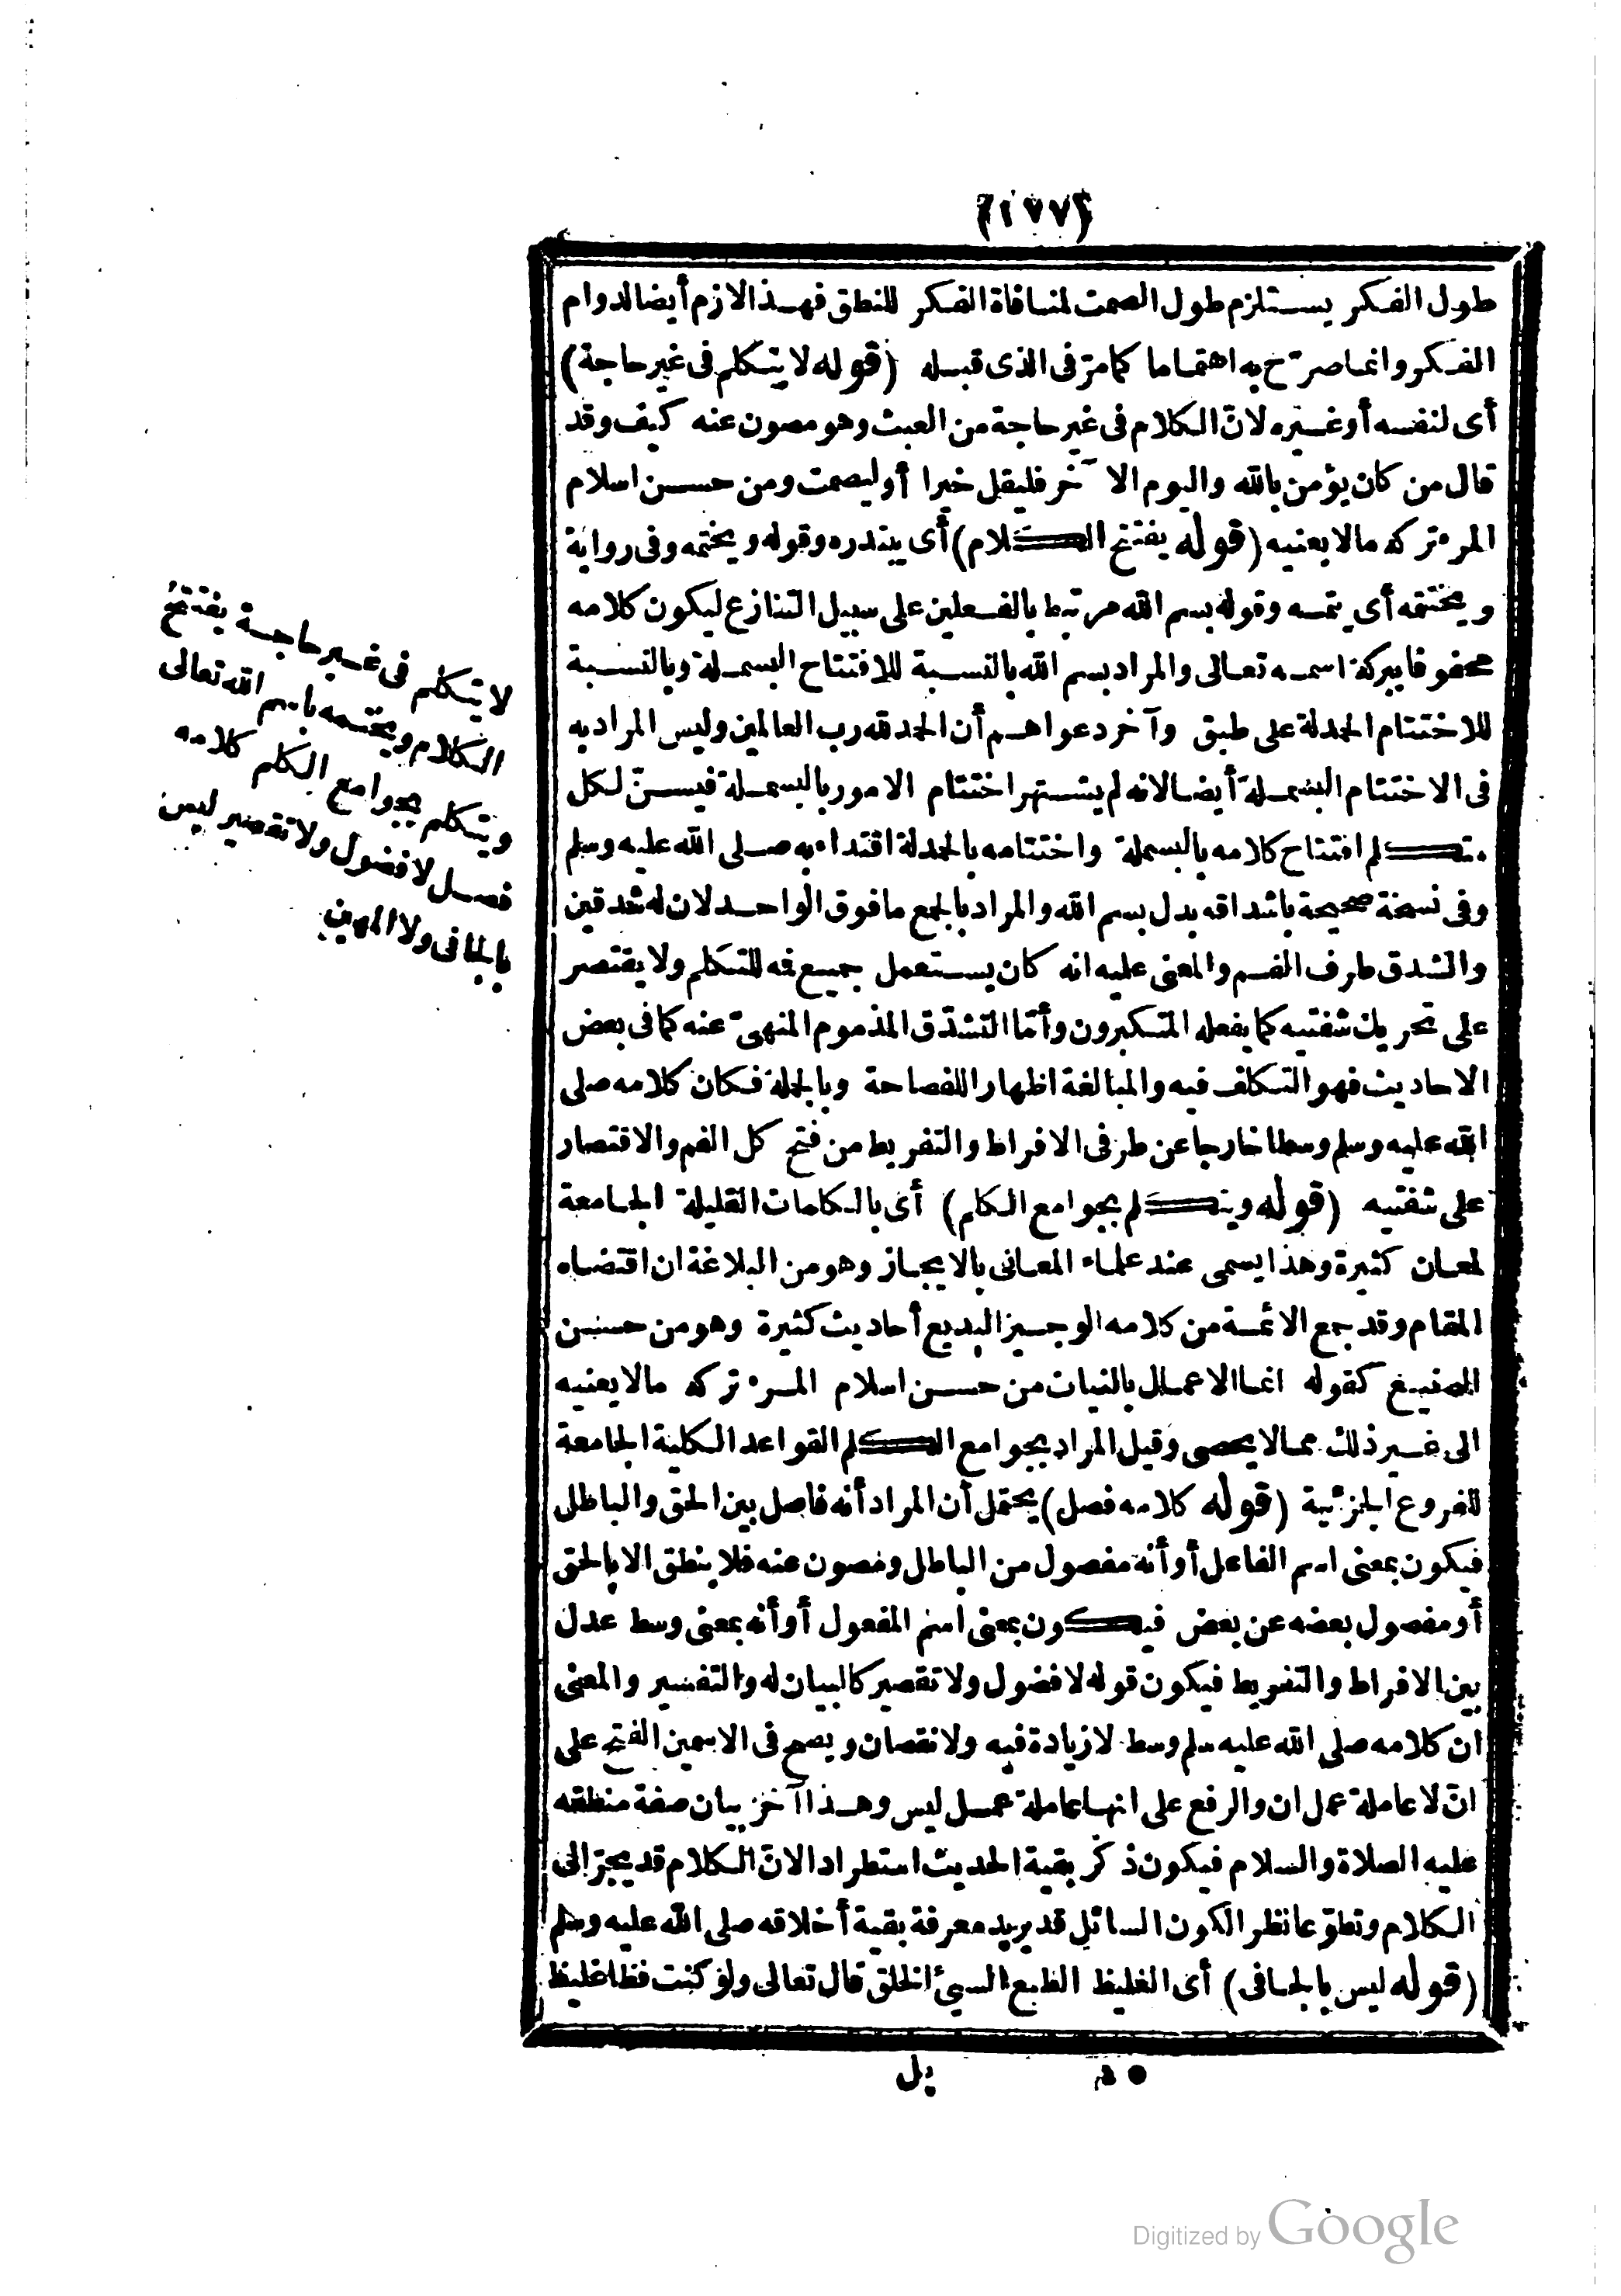 (١٧٧)
طول الفكر يستلزم طول الصمت لمنافاة الفكر للنطق فهذا لازم أيضا لدوام
الفكر وانما صرّح به اهتماما كما مرّ فى الذى قبله (قوله لا يتكلم فى غير حاجة)
أى لنفسه أو غيره لانّ الكلام فى غير حاجة من العبث وهو مصون عنه كيف وقد
قال من كان يؤمن بالله واليوم الآخر فليقل خيرا أو ليصمت ومن حسن اسلام
المرء تركه مالا يعنيه (قوله يفتتح الكلام) أى يبتدره وقوله ويختمه وفى رواية
ويختتمه أى يتمه وقوله بسم الله مرتبط بالفعلين على سبيل التنازع ليكون كلامه
محفوفا ببركة اسمه تعالى والمراد بسم الله بالنسبة للافتتاح البسملة وبالنسبة
للاختتام الحمدلة على طبق وآخر دعواهم أن الحمد لله رب العالمين وليس المراد به
فى الاختتام البسملة أيضا لانه لم يشتهر اختتام الامور بالبسملة فيسنّ لكل
متكلم افتتاح كلامه بالبسملة واختتامه بالحمدلة اقتداء به صلى الله عليه وسلم
وفى نسخة صحيحة باشداقه بدل بسم الله والمراد بالجمع مافوق الواحد لان له شدقين
والشدق طرف الفم والمعنى عليه انه كان يستعمل جميع فه للتكلم ولا يقتصر
على تحريك شفتيه كما يفعله المتكبرون وأمّا التشدّق المذموم المنهىّ عنه كما فى بعض
الاحاديث فهو التكلف فيه والمبالغة اظهارا للفصاحة وبالجملة فكان كلامه صلى
الله عليه وسلم وسطا خارجا عن طرفى الافراط والتفريط من فتح كل الفم والاقتصار
على شفتيه (قوله ويتكلم بجوامع الكلم) أى بالكلمات القليلة الجامعة
لمعان كثيرة وهذا يسمى عند علماء المعانى بالايجاز وهو من البلاغة ان اقتضاه
المقام وقد جمع الائمة من كلامه الوجيز البديع أحاديث كثيرة وهو من حسن
الصنيع كقوله انما الاعمال بالنيات من حسن اسلام المرء تركه مالا يعنيه
الى غير ذلك مما لا يحصى وقيل المراد بجوامع الكلم القواعد الكلية الجامعة
للفروع الجزئية (قوله كلامه فصل) يحتمل أن المراد أنه فاصل بين الحق والباطل
فيكون بمعنى اسم الفاعل أو أنه مفصول من الباطل ومصون عنه فلا ينطق الا بالحق
أو مفصول بعضه عن بعض فيكون بمعنى اسم المفعول أو أنه بمعنى وسط عدل
بين الافراط والتفريط فيكون قوله لا فضول ولا تقصير كالبيان له والتفسير والمعنى
ان كلامه صلى الله عليه سلم وسط لا زيادة فيه ولا نقصان ويصح فى الاسمين الفتح على
انّ لا عاملة عمل ان والرفع على انها عاملة عمل ليس وهذا آخر بيان صفة منطقه
عليه الصلاة والسلام فيكون ذكر بقية الحديث استطرادا لانّ الكلام قد يجرّ الى
الكلام وتطوّعا نظرا لكون السائل قد يريد معرفة بقية أخلاقه صلى الله عليه وسلم
(قوله ليس بالجافى) أى الغليظ الطبع السيئ الخلق قال تعالى ولو كنت فظا غليظ
لا يتكلم فى غير حاجة يفتتح
الكلام ويختمه باسم الله تعالى
ويتكلم بجوامع الكلم كلامه
فصل لا فضول ولا تقصير ليس
بالجافى ولا المهين
يل
Digitized by Google